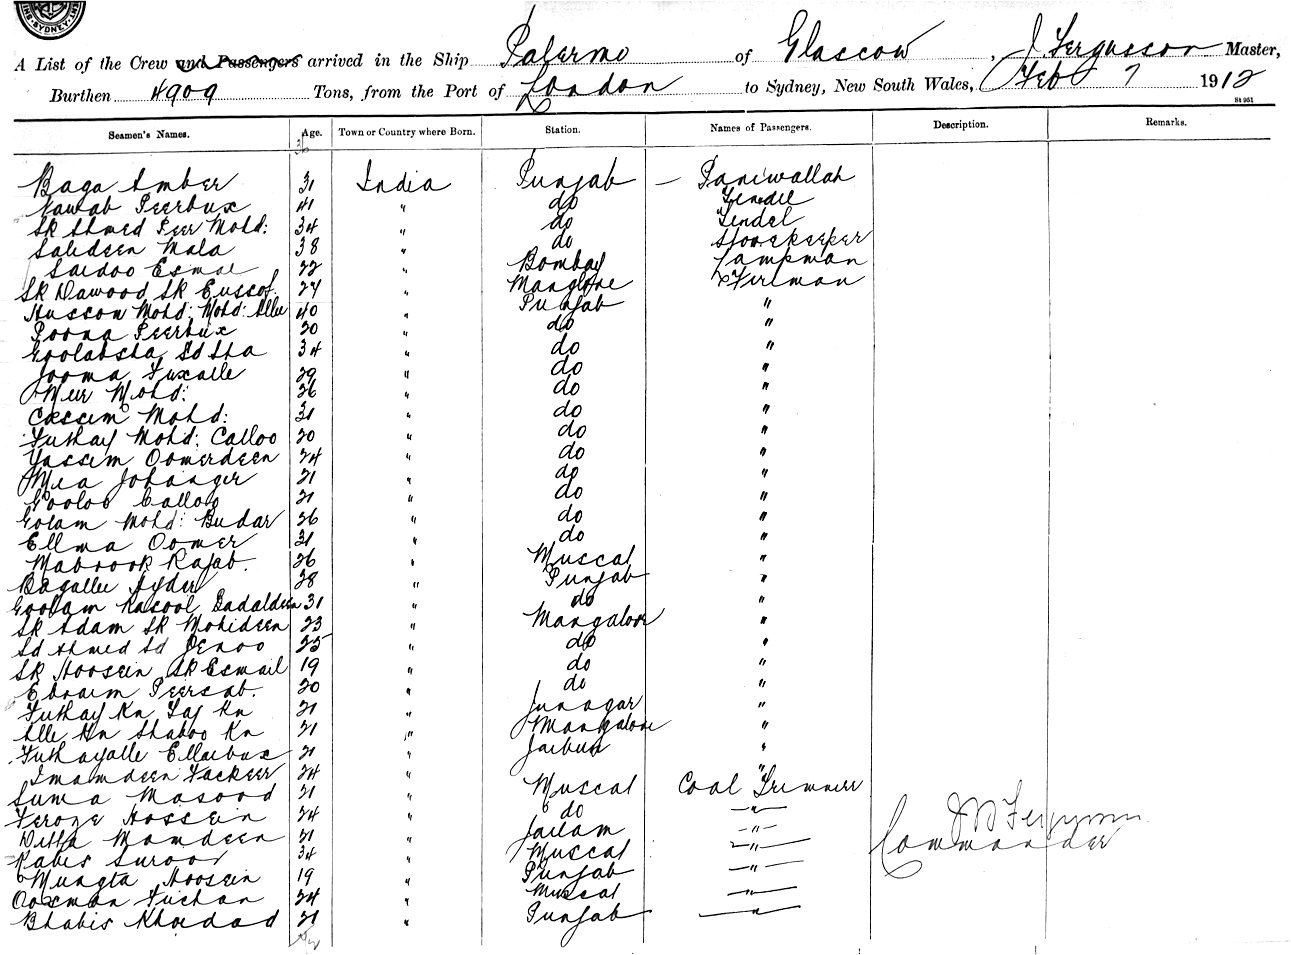 SYDNEY
A List of the Crew and Passengers arrived in the Ship Palermo of Glascow, J Fergusson Master,
Burthen 4909 Tons, from the Port of London to Sydney, New South Wales, Feb 7 1912
St 951
Seamen's Names. Age. Town or Country where Born. Station. Names of Passengers. Description. Remarks.
Baga Amber 31 India Punjab — Paniwallah
Nawab Peerbux 41 " do Tindel
Sk Ahmed Peer Mohd: 34 " do Tindel
Saledeen Mala 38 " do Storekeeper
Saidoo Esmal 22 " Bombay Lampman
Sk Dawood Sk Eussof 27 " Manglore Fireman
Husson Mohd: Mohd: Allee 40 " Punjab "
Poona Peerbux 20 " do "
Goolabsha Sd Sha 34 " do "
Jooma Fuxalle 29 " do "
Meer Mohd: 26 " do "
Cassim Mohd: 31 " do "
Futhay Mohd: Calloo 20 " do "
Yassim Oomerdeen 24 " do "
Mea Johanger 21 " do "
Gooloo Calloo 21 " do "
Golam Mohd: Budar 26 " do "
Ellma Oomer 31 " do "
Mabrook Rajab. 26 " Muscat "
Bagallee Hyder 28 " Punjab "
Goolam Rasool Dadaldeen 31 " do "
Sk Adam Sk Mohideen 23 " Mangalore "
Sd Ahmed Sd Jenoo 25 " do "
Sk Hoosein Sk Esmail 19 " do "
Ebraim Peersab. 20 " do "
Futhay Kn Taj Kn 21 " Junagar "
Alle Kn Shaboo Kn 21 " Mangalore "
Futhayalle Ellaibux 21 " Jaibur "
Imamdeen Fackeer 24 " "
Suma Masood 21 " Muscat Coal Trimmer
Feroze Hossein 24 " do — " —
Ditta Mamdeen 21 " Jailam — " — J D Fergusson
Rabis Suroor 34 " Muscat — " — Commander
Mungta Hoosein 19 " Punjab — " —
Oosman Fuchan 24 " Muscat — " —
Bhabis Khoedad 21 " Punjab — " —